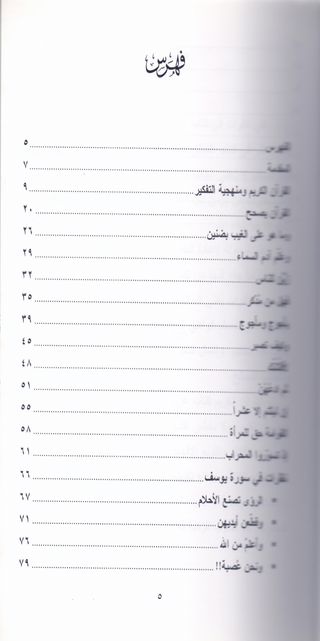 فهرس
الفهرس ٥
المقدمة ٧
القرآن الكريم ومنهجية التفكير ٩
القرآن يصحح ٢٠
وما هو على الغيب بضنين ٢٦
وعلم آدم السماء ٢٩
زُيِّن للناس ٣٢
فهل من مدّكر ٣٥
يأجوج ومأجوج ٣٩
وكيف تصبر ٤٥
٤٨
ثم ادعهنّ ٥١
إن لبثتم إلا عشراً ٥٥
القوامة حق للمرأة ٥٨
إذ تسوّروا المحراب ٦١
نظرات في سورة يوسف ٦٦
• الرؤى تصنع الأحلام ٦٧
• وقطّعن أيديهن ٧١
• وأعلم من الله ٧٦
• ونحن عصبة!! ٧٩
٥